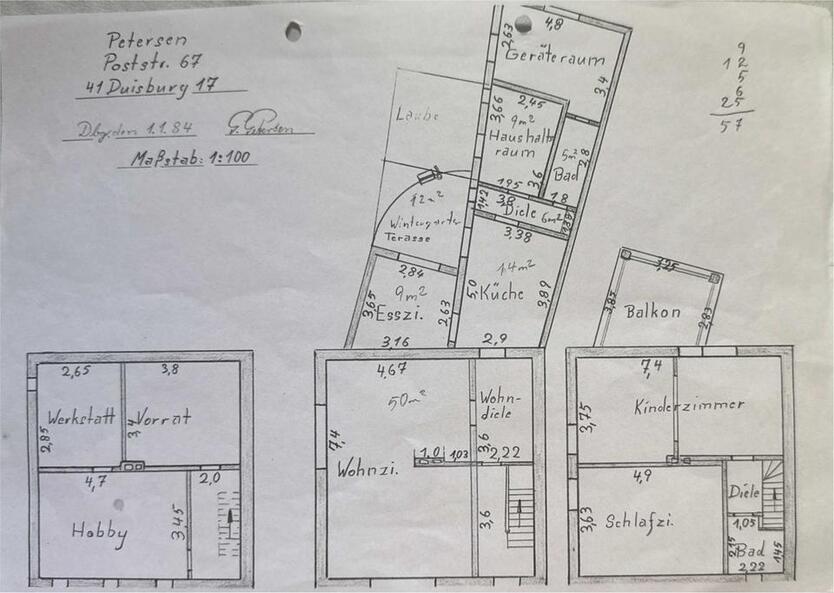 Petersen
Poststr. 67
41 Duisburg 17
Dbg, den 1.1.84
Maßstab: 1:100
9
12
5
6
25
57
4,8
2,63
Geräteraum
3,4
Laube
2,45
3,66
9m²
Haushalts
raum
5m²
Bad
2,8
3,6
195
1,8
12m²
Wintergarten
Terasse
1,42
3,8
Diele 6m²
1,39
3,38
2,84
9m²
3,65
Esszi.
2,63
3,16
14m²
5,0
Küche
3,89
2,9
3,25
3,83
Balkon
2,83
2,65
3,8
Werkstatt
Vorrat
2,85
3,4
4,7
2,0
Hobby
3,45
4,67
50m²
Wohn-
diele
7,4
3,6
1,0
1,03
2,22
Wohnzi.
3,6
7,4
Kinderzimmer
3,75
4,9
3,63
Schlafzi.
Diele
1,05
2,15
Bad
1,45
2,22